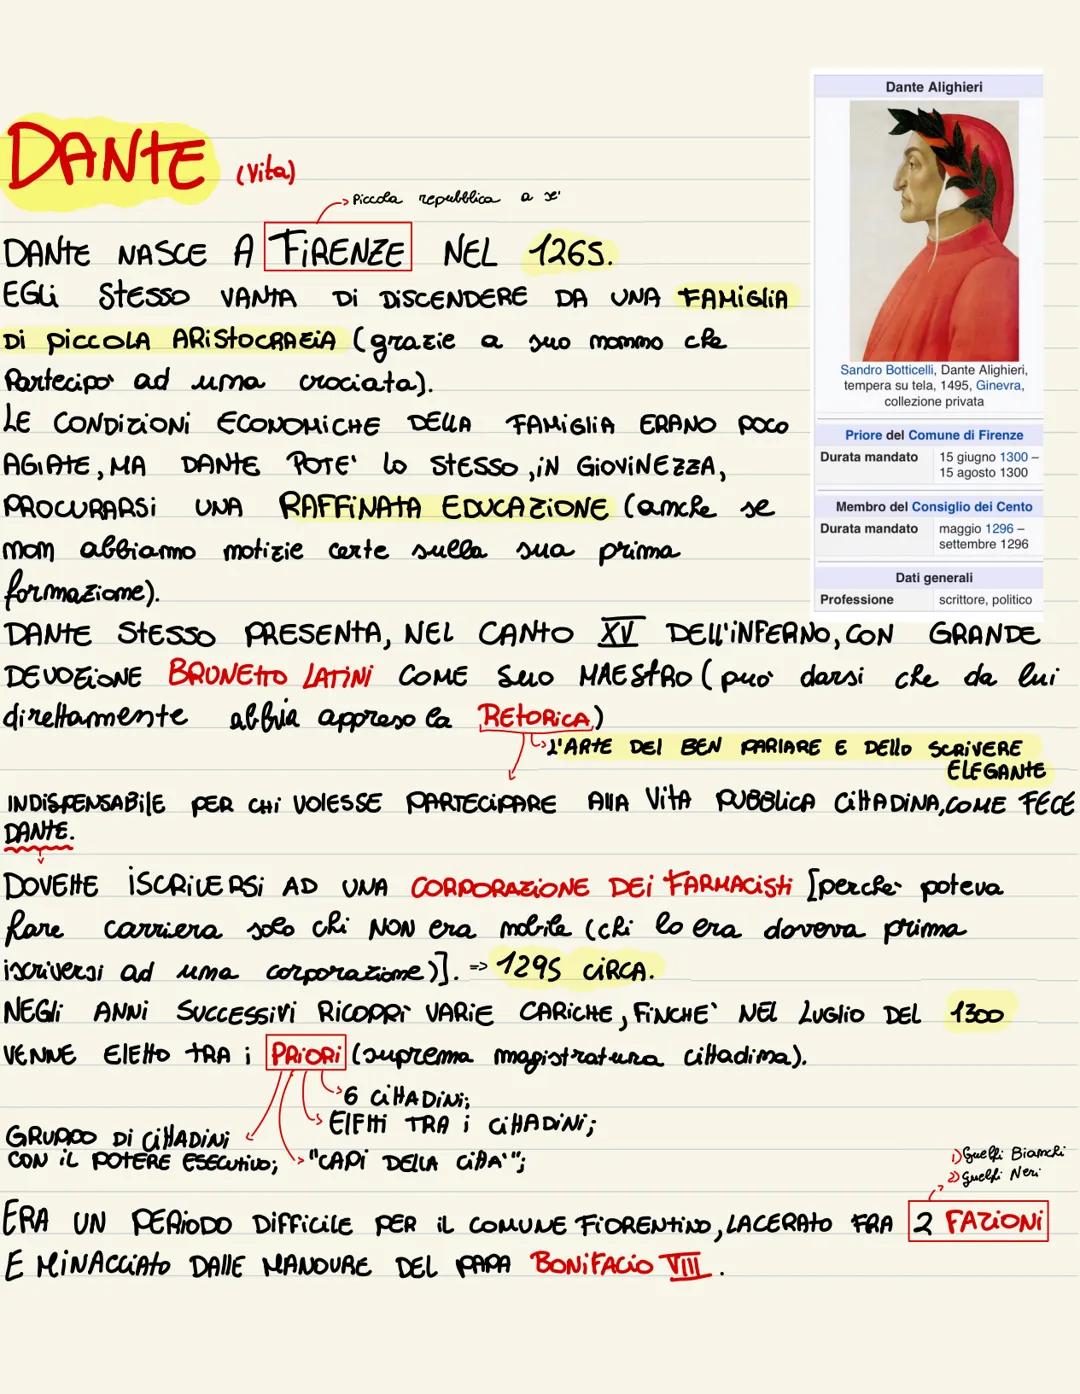 DANTE (Vita)
Piccola repubblica a se'
DANTE NASCE A FIRENZE NEL 1265.
EGLI STESSO VANTA DI DISCENDERE DA UNA FAMIGLIA
DI PICCOLA ARISTOCRAZIA (grazie a suo nonno che
Partecipo' ad una crociata).
LE CONDIZIONI ECONOMICHE DELLA FAMIGLIA ERANO POCO
AGIATE, MA DANTE POTE' LO STESSO, IN GIOVINEZZA,
PROCURARSI UNA RAFFINATA EDUCAZIONE (anche se
non abbiamo notizie certe sulla sua prima
formazione).
Dante Alighieri
Sandro Botticelli, Dante Alighieri,
tempera su tela, 1495, Ginevra,
collezione privata
Priore del Comune di Firenze
Durata mandato 15 giugno 1300 –
15 agosto 1300
Membro del Consiglio dei Cento
Durata mandato maggio 1296 –
settembre 1296
Dati generali
Professione scrittore, politico
DANTE STESSO PRESENTA, NEL CANTO XV DELL'INFERNO, CON GRANDE
DEVOZIONE BRUNETTO LATINI COME SUO MAESTRO (puo' darsi che da lui
direttamente abbia appreso la RETORICA)
L'ARTE DEL BEN PARLARE E DELLO SCRIVERE
ELEGANTE
INDISPENSABILE PER CHI VOLESSE PARTECIPARE ALLA VITA PUBBLICA CITTADINA, COME FECE
DANTE.
DOVETTE ISCRIVERSI AD UNA CORPORAZIONE DEI FARMACISTI [perche' poteva
fare carriera solo chi NON era nobile (chi lo era doveva prima
iscriversi ad una corporazione)]. => 1295 CIRCA.
NEGLI ANNI SUCCESSIVI RICOPRI' VARIE CARICHE, FINCHE' NEL LUGLIO DEL 1300
VENNE ELETTO TRA I PRIORI (suprema magistratura cittadina).
6 CITTADINI;
ELETTI TRA I CITTADINI;
GRUPPO DI CITTADINI
CON IL POTERE ESECUTIVO;
"CAPI DELLA CITTA'";
1) Guelfi Bianchi
2) Guelfi Neri
ERA UN PERIODO DIFFICILE PER IL COMUNE FIORENTINO, LACERATO FRA 2 FAZIONI
E MINACCIATO DALLE MANOVRE DEL PAPA BONIFACIO VIII.